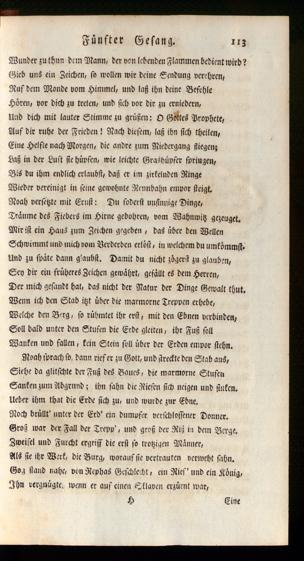 Fünfter Gesang. 113
Wunder zu thun dem Mann, der von lebenden Flammen bedient wird?
Gieb uns ein Zeichen, so wollen wir deine Sendung verehren,
Ruf dem Monde vom Himmel, und laß ihn deine Befehle
Hören, vor dich zu treten, und sich vor dir zu erniedern,
Und dich mit lauter Stimme zu grüßen: O Gottes Prophete,
Auf dir ruhe der Frieden! Nach diesem, laß ihn sich theilen,
Eine Helfte nach Morgen, die andre zum Niedergang steigen;
Laß in der Luft sie hüpfen, wie leichte Grashüpfer springen,
Bis du ihm endlich erlaubst, daß er im zirkelnden Ringe
Wieder vereinigt in seine gewohnte Rennbahn empor steigt.
Noah versetzte mit Ernst: Du foderst unsinnige Dinge,
Träume des Fiebers im Hirne gebohren, vom Wahnwitz gezeuget.
Mir ist ein Haus zum Zeichen gegeben, das über den Wellen
Schwimmt und mich vom Verderben erlöst, in welchem du umkömmst.
Und zu späte dann glaubst. Damit du nicht zögerst zu glauben,
Sey dir ein früheres Zeichen gewährt, gefällt es dem Herren,
Der mich gesandt hat, das nicht der Natur der Dinge Gewalt thut.
Wenn ich den Stab itzt über die marmorne Treppen erhebe,
Welche den Berg, so rühmtet ihr erst, mit den Ebnen verbinden,
Soll bald unter den Stufen die Erde gleiten, ihr Fuß soll
Wanken und fallen, kein Stein soll über der Erden empor stehn.
Noah sprach so, dann rief er zu Gott, und streckte den Stab aus,
Siehe da glitschte der Fuß des Baues, die marmorne Stufen
Sanken zum Abgrund; ihn sahn die Riesen sich neigen und sinken.
Ueber ihm that die Erde sich zu, und wurde zur Ebne.
Noch brüllt' unter der Erd' ein dumpfer verschlossener Donner.
Groß war der Fall der Trepp', und groß der Riß in dem Berge.
Zweifel und Furcht ergriff die erst so trotzigen Männer,
Als sie ihr Werk, die Burg, worauf sie vertrauten verweht sahn.
Gog stand nahe, von Rephas Geschlecht, ein Ries' und ein König,
Ihn vergnügte, wenn er auf einen Sklaven erzürnt war,
H Eine